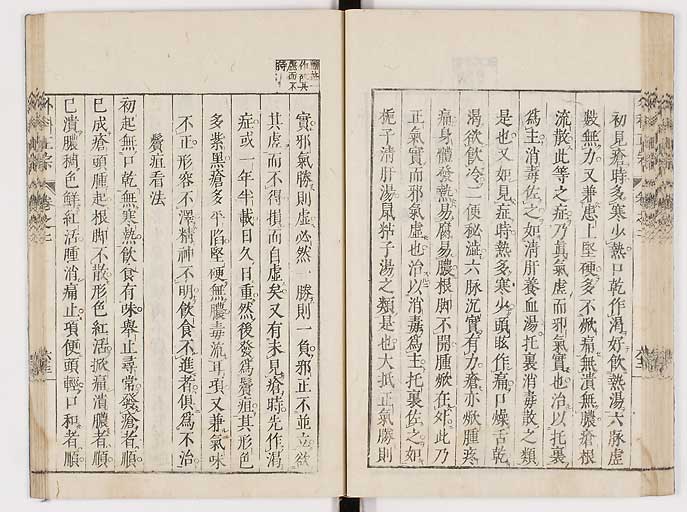 初見瘡時多寒少熱口乾作渴好飲熱湯六脉虛
數無力又兼患上堅硬多不焮痛無潰無膿瘡根
流散此等之症乃真氣虛而邪氣實也治以托裏
爲主消毒佐之如清肝養血湯托裏消毒散之類
是也又如見症時熱多寒少頭眩作痛口燥舌乾
渴欲飲冷二便秘澁六脉沉實有力瘡亦焮腫疼
痛身體發熱易腐易膿根脚不開腫焮在外此乃
正氣實而邪氣虛也治以消毒爲主托裏佐之如
梔子清肝湯鼠粘子湯之類是也大抵正氣勝則
實邪氣勝則虛必然一勝則一負邪正不並立欲
其虛而不得損而自虛矣又有未見瘡時先作渴
症或一年半載日久日重然後發爲鬢疽其形色
多紫黑瘡多平陷堅硬無膿毒流耳項又兼氣味
不正形容不澤精神不明飲食不進者俱爲不治
鬢疽看法
初起無口乾無寒熱飲食有味舉止尋常發瘡者順
已成瘡頭腫起根脚不散形色紅活焮痛潰膿者順
已潰膿稠色鮮紅活腫消痛止項便頭輕口和者順
外科正宗 卷之二